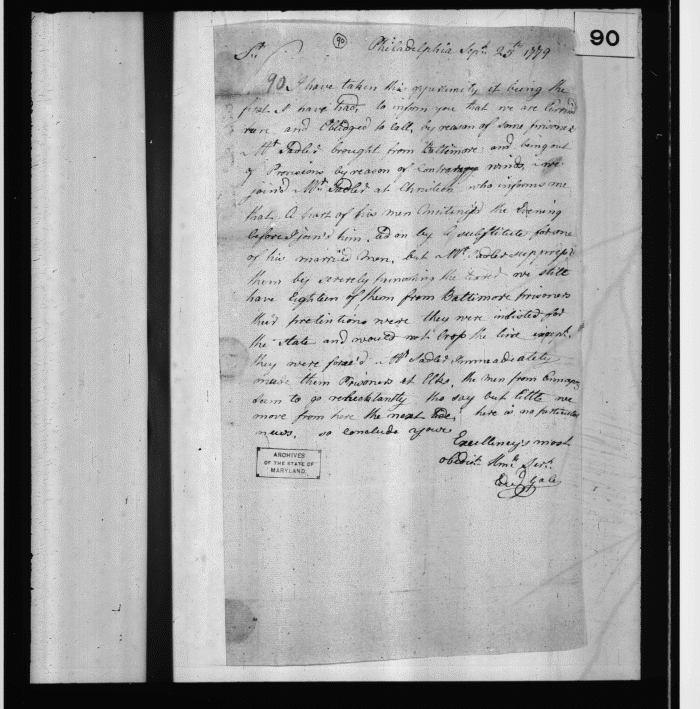 90
90
Sir
Philadelphia Sepr. 25th 1779
90 I have taken this oppurtunity it being the
first I have had, to inform you that we are
and Obledged to call, by reason of some prisoners
Mr. Sadler brought from Baltimore and being out
of Provisions by reason of Contrary winds, we
join'd Mr. Sadler at Christien who informs me
that A part of his men Mutinis'd the Evening
before I join'd him. Led on by A substitute for one
of his married Men, but Mr. Sadler suppress'd
them by severely punishing the we still
have Eighteen of them from Baltimore prisoners
their pretentions were they were inlisted for
the State and would not Crop the line except
they were forc'd Mr. Sadler Immeadiately
made them Prisoners at Elke, the men from
seem to go reluctantly tho say but little we
move from here the next tide, here is no
news, so conclude your
Excellency's most
obedt. Hml. Servt.
Gale
ARCHIVES
OF THE STATE OF
MARYLAND